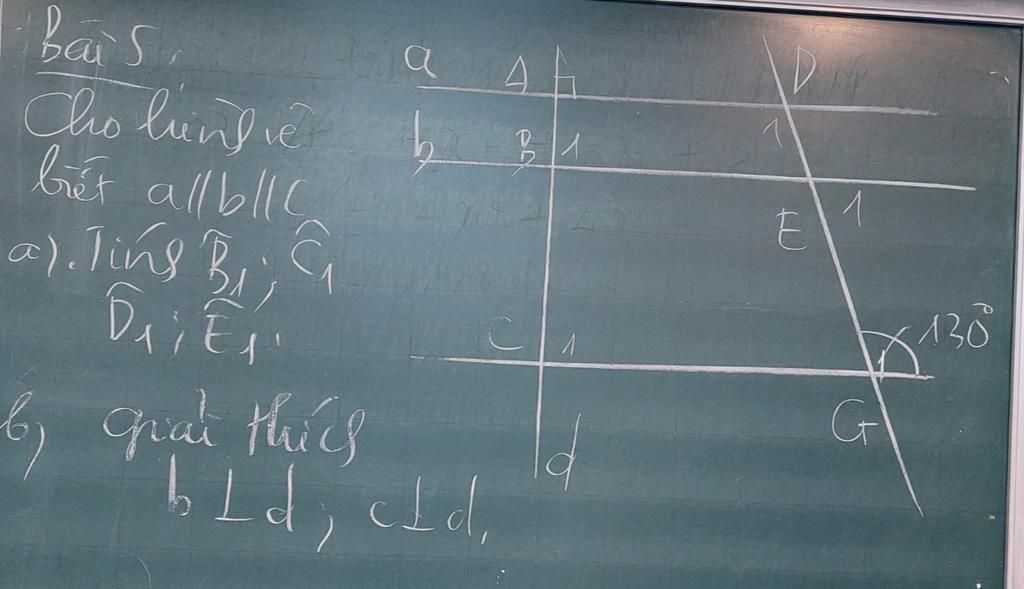 Bài 5.
Cho hình vẽ
biết a // b // c
a). Tính B̂₁; Ĉ₁
D̂₁; Ê₁.
b) giải thích
b ⊥ d; c ⊥ d.
a A D
1
b B 1
E 1
C 1 130°
G
d